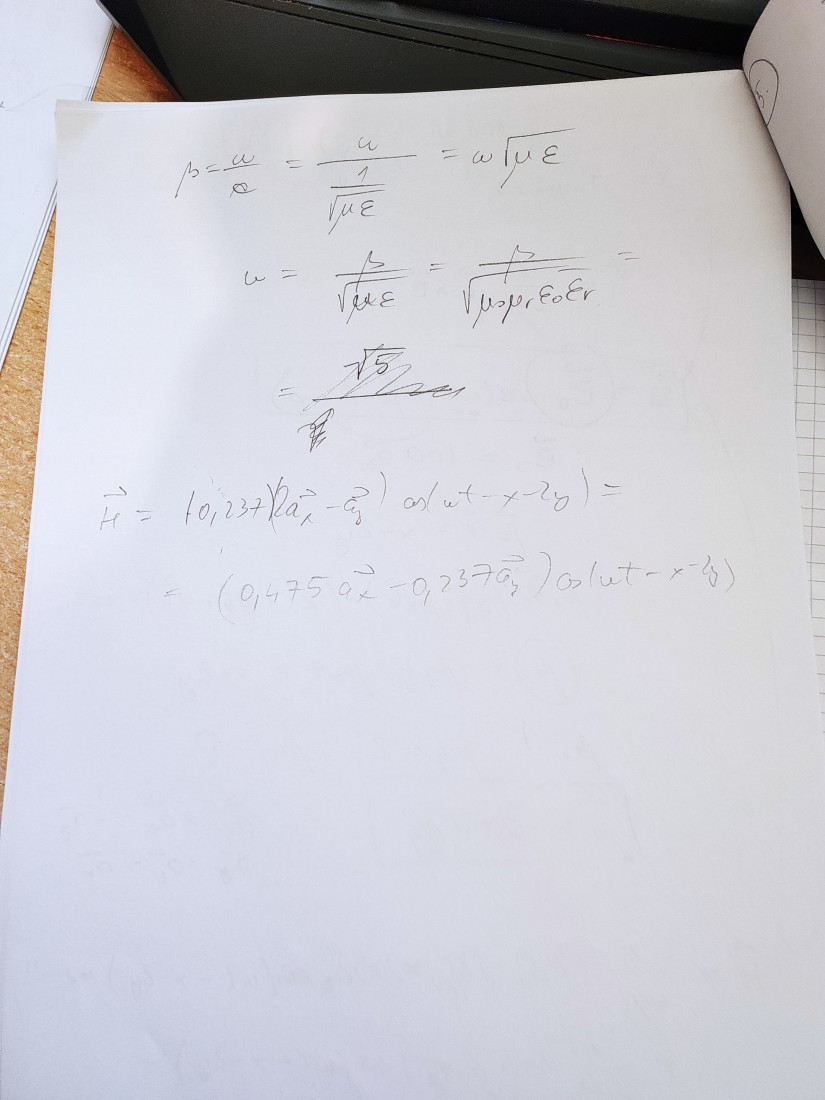 β = ω/c = ω/(1/√με) = ω√με
ω = β/√με = β/√μ₀μᵣε₀εᵣ =
= √5
H⃗ = (0,237)(2a⃗ₓ - a⃗ᵧ) cos(ωt - x - 2y) =
= (0,475 a⃗ₓ - 0,237 a⃗ᵧ) cos(ωt - x - 2y)